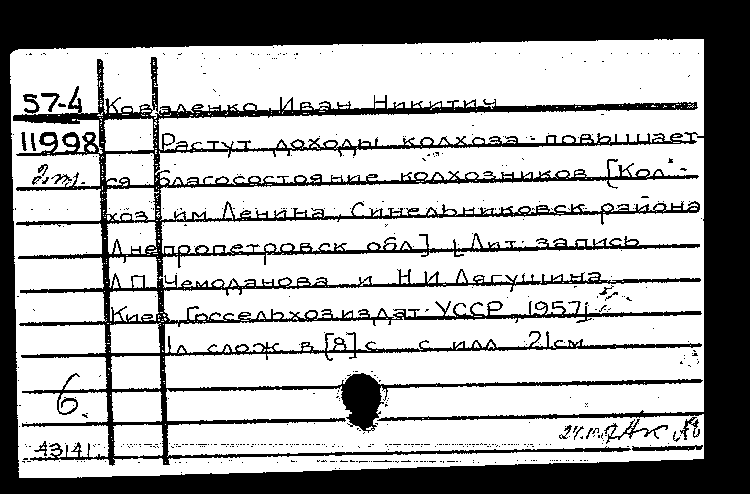 57-4 Коваленко, Иван Никитич
11998 Растут доходы колхоза - повышает-
ся благосостояние колхозников [Кол-
хоз им Ленина, Синельниковск района
Днепропетровск обл.]. [Лит. запись
Л.П. Чемоданова и Н.И. Лягушина
Киев, Госсельхозиздат УССР, 1957]
1л слож в [8] с. с илл 21см
6.
43141